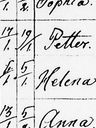 1/1 2/1 Sophia.
17/1 19/1 Petter.
4/1 5/1 Helena
13/1 5/2 Anna.